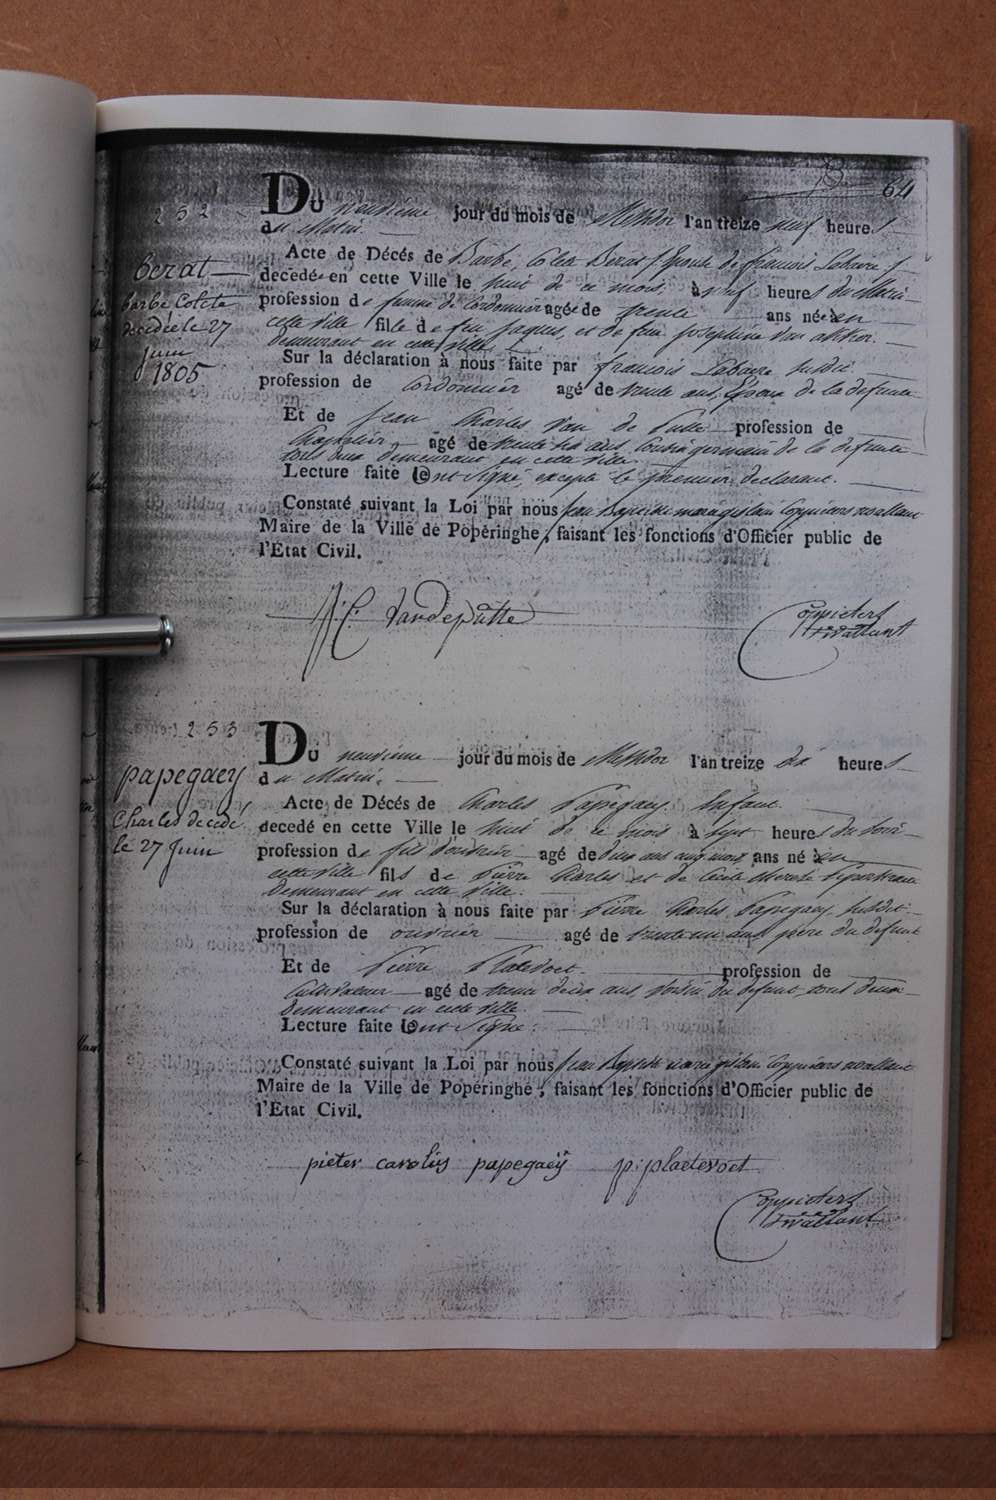 64
252
Du neuvième jour du mois de Messidor l'an treize neuf heures
du Matin.
Berat
Barbe Colete
decedée le 27
juin
1805
Acte de Décés de Barbe, Colete Berat Epouse de francois Labaere
decedée en cette Ville le huit de ce mois à neuf heures du Matin
profession de femme de Cordonnier agée de trente ans née en
cette ville fille de feu Jaques, et de feue Josephine Van
demeurant en cette Ville
Sur la déclaration à nous faite par francois Labaere susdit
profession de Cordonnier agé de trente ans, Epoux de la defunte
Et de Jean Charles Van de Putte profession de
Chapelier agé de trente six ans Cousin germain de la defunte
tous deux demeurant en cette Ville
Lecture faite ont Signé, excepté le premier declarant.
Constaté suivant la Loi par nous Jean Baptiste marie gislain Coppieters wallant
Maire de la Ville de Poperinghe, faisant les fonctions d'Officier public de
l'Etat Civil.
J: C: Vandeputte
Coppieters
twallant
253
Du neuvième jour du mois de Messidor l'an treize dix heures
du Matin.
papegaey
Charles decedé
le 27 Juin
Acte de Décés de Charles Papegaey Enfant
decedé en cette Ville le huit de ce mois à sept heures du Soir
profession de fils d'ouvrier agé de deux ans mois ans né en
cette ville fils de Pierre Charles et de Cecile therese
demeurant en cette Ville.
Sur la déclaration à nous faite par Pierre Charles Papegaey susdit
profession de ouvrier agé de ans père du defunt
Et de Pierre Platevoet profession de
Cultivateur agé de trente deux ans, Voisin du defunt, tous deux
demeurant en cette Ville.
Lecture faite ont Signé.
Constaté suivant la Loi par nous Jean Baptiste marie gislain Coppieters wallant
Maire de la Ville de Poperinghe, faisant les fonctions d'Officier public de
l'Etat Civil.
pieter carolus papegaeÿ p: plaetevoet
Coppieters
twallant